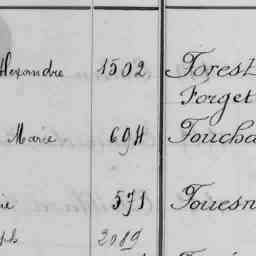 Alexandre 1502 Forest
Forget
Marie 694 Foucha
ie 571 Fouesn
ph 2089